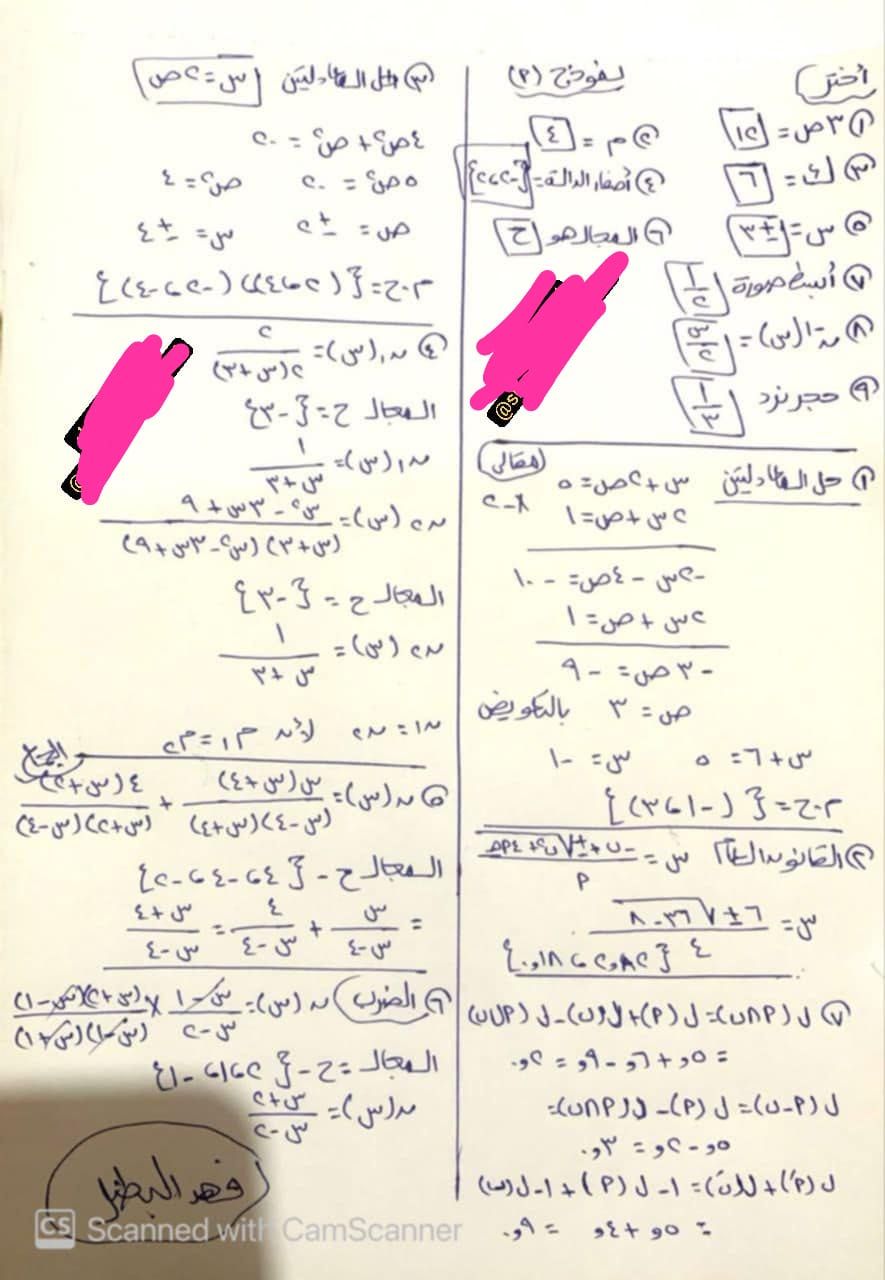 أختر
نموذج (٩)
١ ٣ص = ١٢
٢ م = ٤
٣ ك = ٦
٤ أصفار الدالة = {-٢، ٢}
٥ س = ±٣
٦ المجال هو ح
٧ أبسط صورة ١/٢
٨ ن⁻¹(س) =
٩ حجر نزد ١/٣
مقالي
١ حل المعادلتين س + ٢ص = ٥ ×-٢
٢س + ص = ١
-٢س - ٤ص = -١٠
٢س + ص = ١
-٣ص = -٩
ص = ٣ بالتعويض
س + ٦ = ٥ س = -١
م.ح = {(-١، ٣)}
٢ القانون العام س =
س = (٦ ± √(٣٦ - ٨)) / ٤
{٢,٨٢، ٠,١٨}
٧ ل(أ∩ب) = ل(أ) + ل(ب) - ل(أ∪ب)
= ٠,٥ + ٠,٦ - ٠,٩ = ٠,٢
ل(أ-ب) = ل(أ) - ل(أ∩ب) =
٠,٥ - ٠,٢ = ٠,٣
ل(أ') + ل(ب') = ١ - ل(أ) + ١ - ل(ب)
= ٠,٥ + ٠,٤ = ٠,٩
٣ حل المعادلتين س = ٢ص
٤ص² + ص² = ٢٠
٥ص² = ٢٠ ص² = ٤
ص = ±٢ س = ±٤
م.ح = {(٢، ٤)، (-٢، -٤)}
٤ ن١(س) = ٢ / ٢(س + ٣)
المجال ح = {-٣}
ن١(س) = ١ / (س + ٣)
ن٢(س) = (س² - ٣س + ٩) / ((س + ٣)(س² - ٣س + ٩))
المجال ح = {-٣}
ن٢(س) = ١ / (س + ٣)
ن١ = ن٢ لأن م١ = م٢
الجمع
٥ ن(س) = س(س + ٤) / ((س - ٤)(س + ٤)) + ٤(س + ٢) / ((س + ٢)(س - ٤))
المجال ح - {٤، -٤، -٢}
= س / (س - ٤) + ٤ / (س - ٤) = (س + ٤) / (س - ٤)
٦ الضرب ن(س) = (س - ١) / (س - ٢) × (س + ٢)(س - ١) / ((س - ١)(س + ١))
المجال = ح - {٢، ١، -١}
ن(س) = (س + ٢) / (س - ٢)
@s
CS Scanned with CamScanner